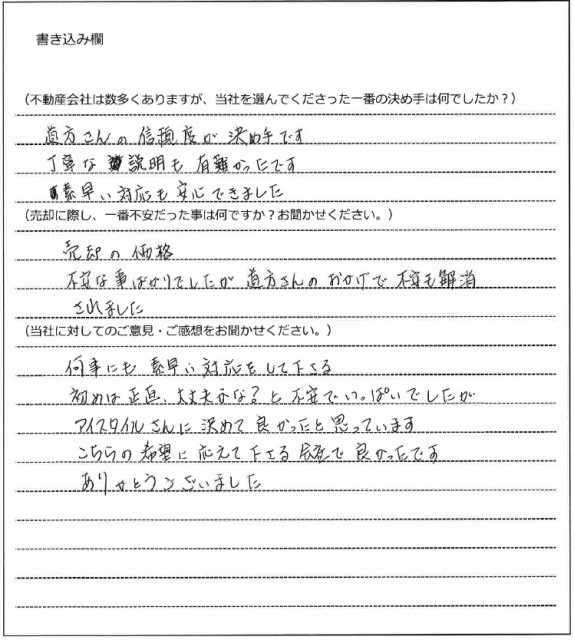 書き込み欄
（不動産会社は数多くありますが、当社を選んでくださった一番の決め手は何でしたか？）
直方さんの信頼度が決め手です
丁寧な説明も有難かったです
素早い対応も安心できました
（売却に際し、一番不安だった事は何ですか？お聞かせください。）
売却の価格
不安な事ばかりでしたが直方さんのおかげで不安も解消
されました
（当社に対してのご意見・ご感想をお聞かせください。）
何事にも素早い対応をして下さる
初めは正直、大丈夫かな？と不安でいっぱいでしたが
アイスタイルさんに決めて良かったと思っています
こちらの希望に応えて下さる会社で良かったです
ありがとうございました